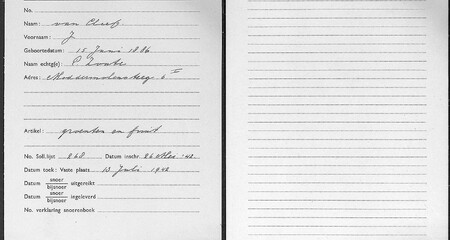 No.
Naam: van Cleef
Voornaam: J.
Geboortedatum: 15 Juni 1886
Naam echtg(e):
Adres: Moddermolensteeg 6 I
Artikel: groenten en fruit
No. Soll.lijst 868 Datum inschr. 26 Mei '42.
Datum toek: Vaste plaats 13 Juli 1942
Datum snoer/bijsnoer uitgereikt
Datum snoer/bijsnoer ingeleverd
No. verklaring snoerenboek